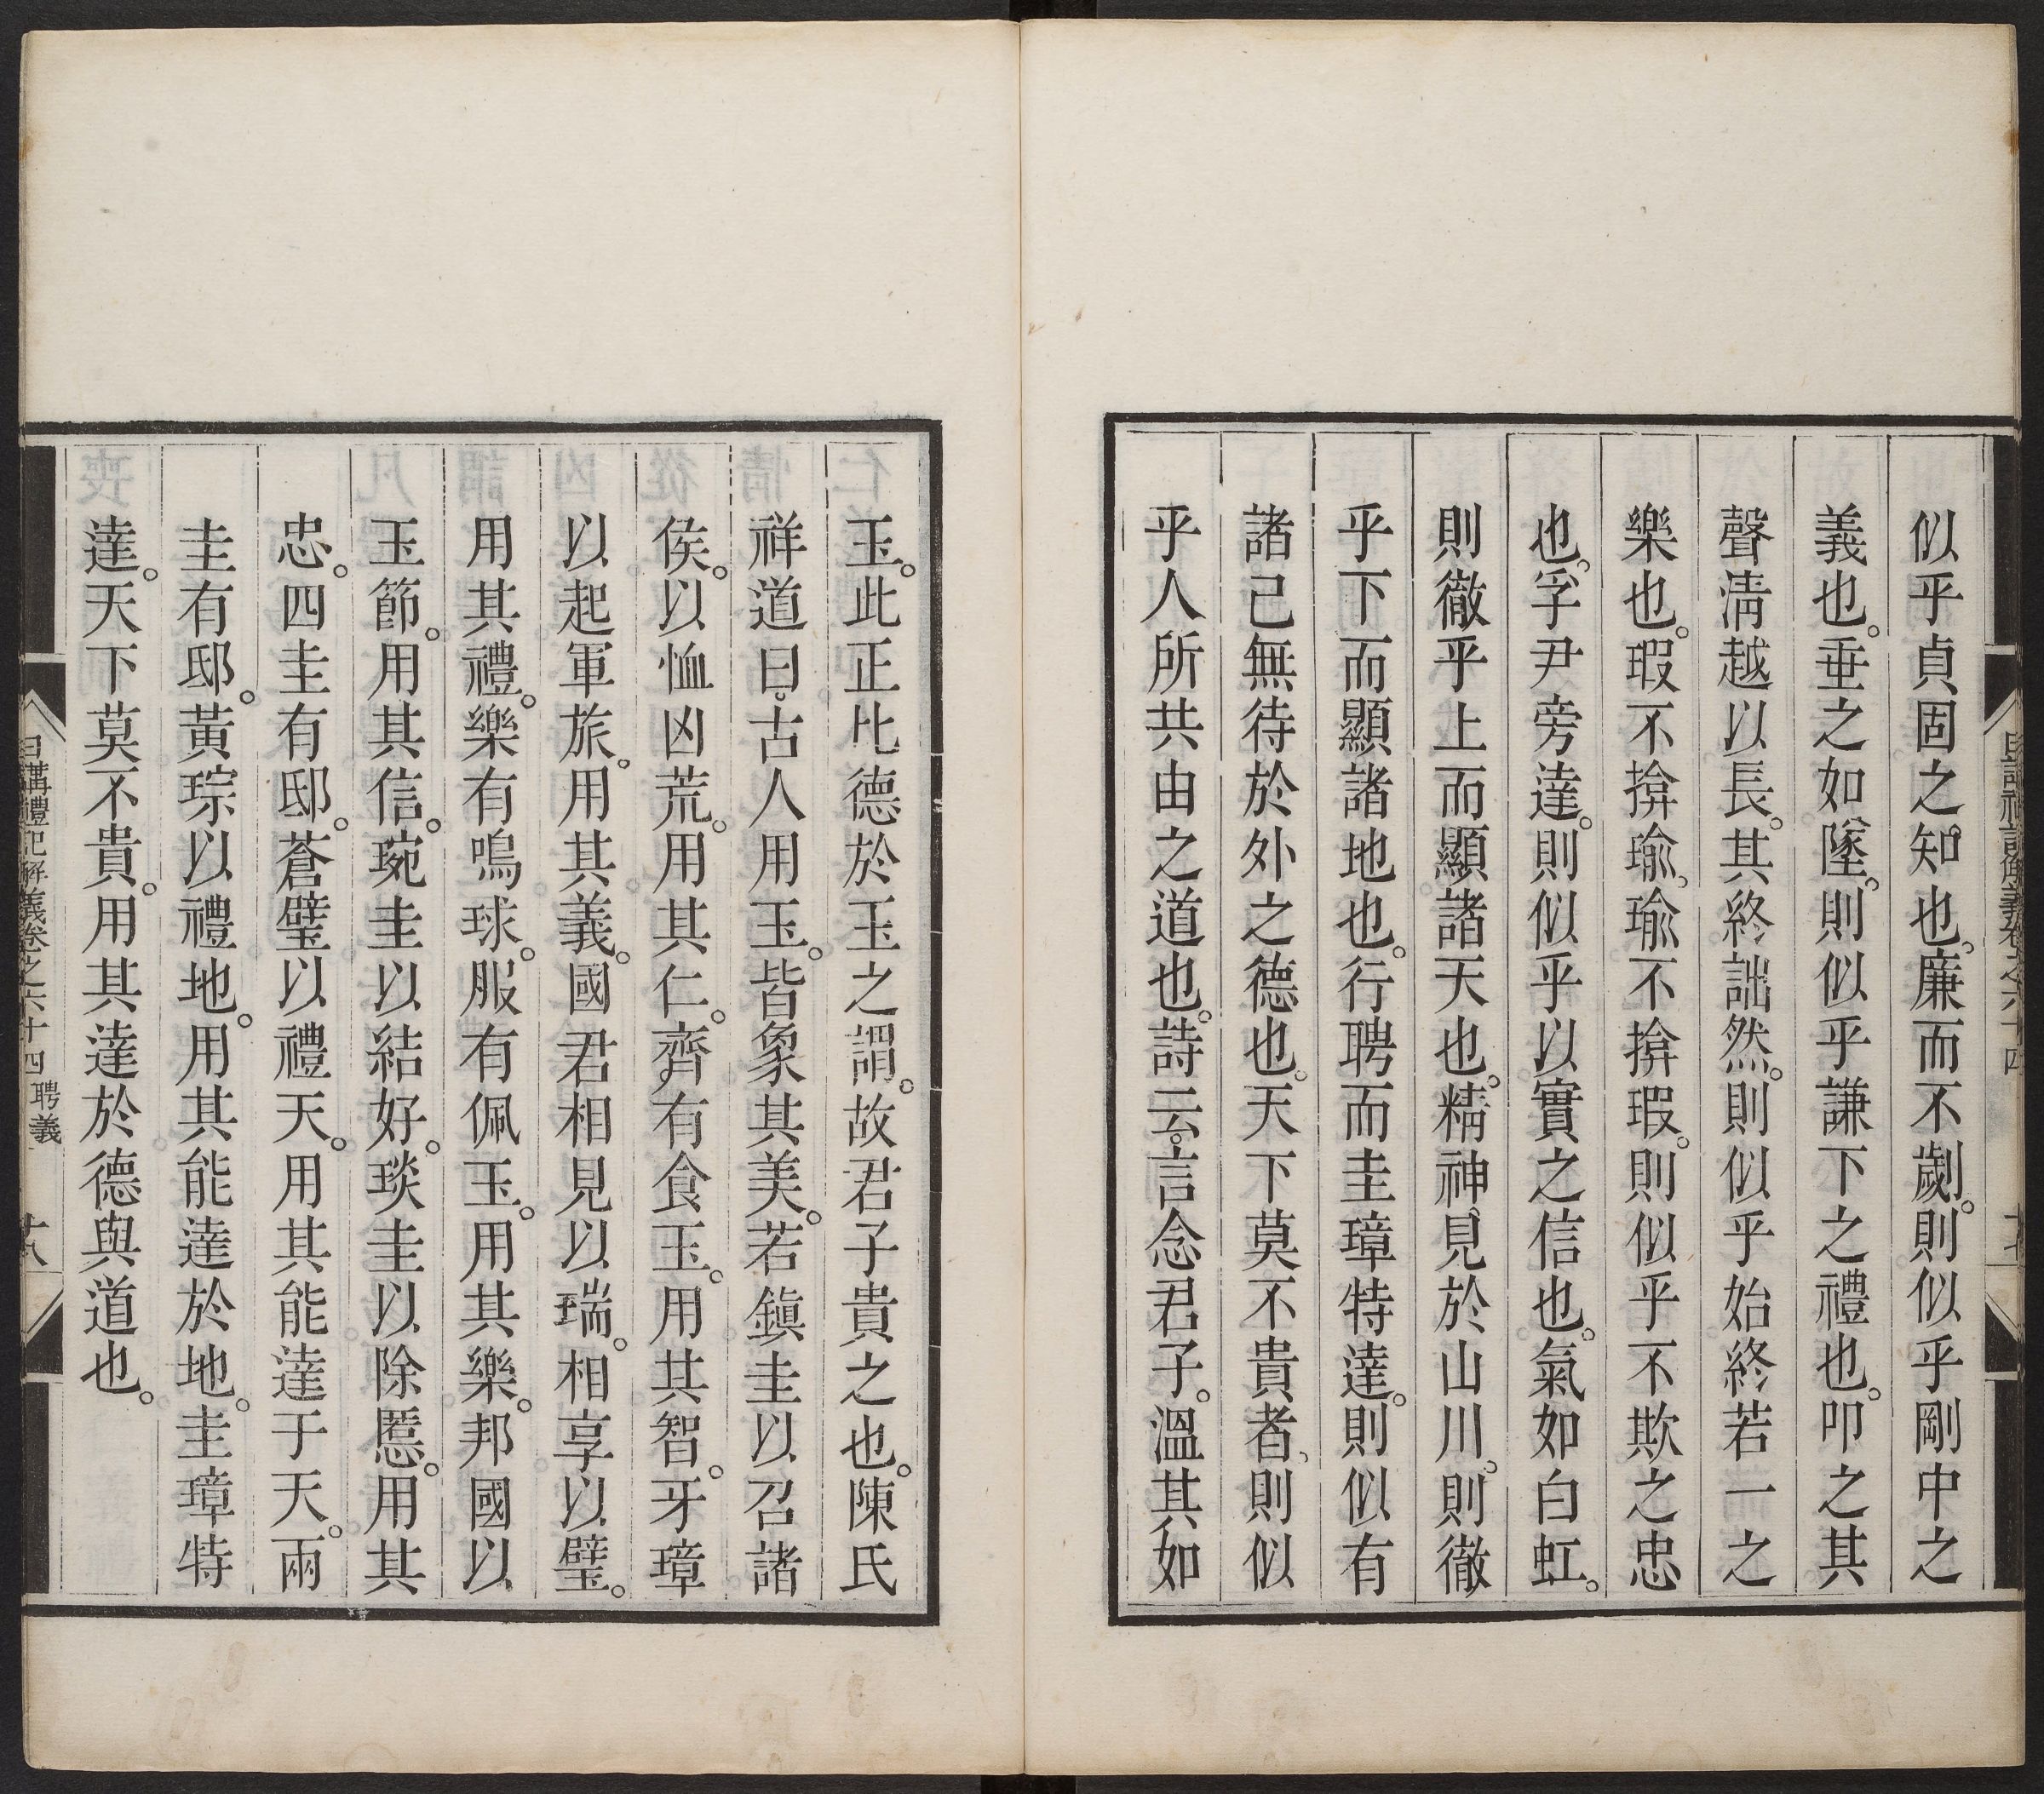 似乎貞固之知也。廉而不劌。則似乎剛中之
義也。垂之如墜。則似乎謙下之禮也。叩之其
聲淸越以長。其終詘然。則似乎始終若一之
樂也。瑕不揜瑜。瑜不揜瑕。則似乎不欺之忠
也。孚尹旁達。則似乎以實之信也。氣如白虹。
則徹乎上而顯諸天也。精神見於山川。則徹
乎下而顯諸地也。行聘而圭璋特達。則似有
諸己無待於外之德也。天下莫不貴者。則似
乎人所共由之道也。詩云。言念君子。溫其如
玉。此正比德於玉之謂。故君子貴之也。陳氏
祥道曰。古人用玉。皆象其美。若鎭圭以召諸
侯。以恤凶荒。用其仁。齊有食玉。用其智。牙璋
以起軍旅。用其義。國君相見以瑞。相享以璧。
用其禮。樂有鳴球。服有佩玉。用其樂。邦國以
玉節。用其信。琬圭以結好。琰圭以除慝。用其
忠。四圭有邸。蒼璧以禮天。用其能達于天。兩
圭有邸。黃琮以禮地。用其能達於地。圭璋特
達。天下莫不貴。用其達於德與道也。
日講禮記解義卷之六十四 聘義 十八